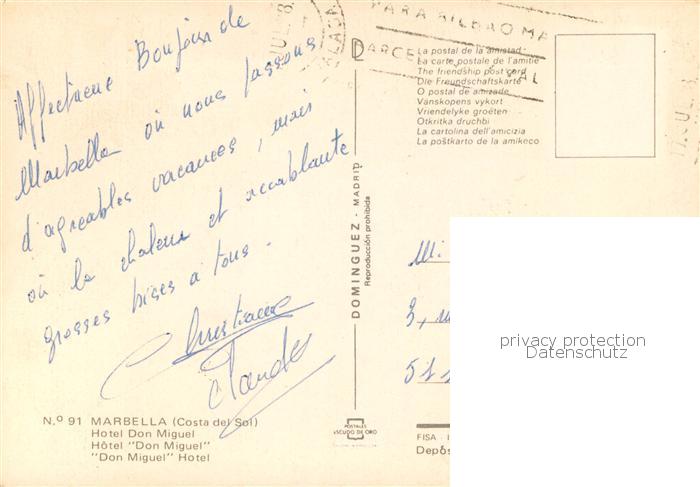 Affectueux Bonjour de
Marbella où nous passons
d'agréables vacances, mais
où la chaleur est accablante
grosses bises à tous.
Christiane
Claude
N.º 91 MARBELLA (Costa del Sol)
Hotel Don Miguel
Hôtel "Don Miguel"
"Don Miguel" Hotel
DOMINGUEZ - MADRID
Reproducción prohibida
POSTALES
ESCUDO DE ORO
PARA BILBAO MA
BARCEL
La postal de la amistad
La carte postale de l'amitie
The friendship post card
Die Freundschaftskarte
O postal de amizade
Vänskopens vykort
Vriendelyke groëten
Otkritka druchbi
La cartolina dell'amicizia
La poŝtkarto de la amikeco
M.
3,
51
privacy protection
Datenschutz
FISA - I
Depós